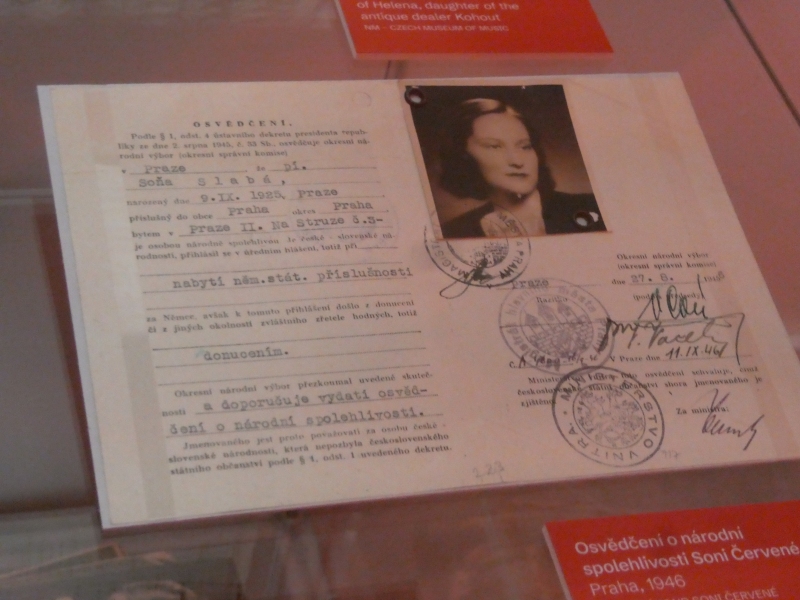 of Helena, daughter of the
antique dealer Kohout
NM – CZECH MUSEUM OF MUSIC
OSVĚDČENÍ.
Podle § 1, odst. 4 ústavního dekretu presidenta repub-
liky ze dne 2. srpna 1945, č. 33 Sb., osvědčuje okresní ná-
rodní výbor (okresní správní komise)
v Praze že pí.
Soňa Slabá,
narozený dne 9.IX. 1925, Praze
příslušný do obce Praha okres Praha
bytem v Praze II. Na Struze č.3-
je osobou národně spolehlivou že české - slovenské ná-
rodnosti, přihlásil se v úředním hlášení, totiž při
nabytí něm.stát. příslušnosti
za Němce, avšak k tomuto přihlášení došlo z donucení
či z jiných okolností zvláštního zřetele hodných, totiž
donucením.
Okresní národní výbor přezkoumal uvedené skuteč-
nosti a doporučuje vydati osvěd-
čení o národní spolehlivosti.
Jmenovaného jest proto považovati za osobu české -
slovenské národnosti, která nepozbyla československého
státního občanství podle § 1, odst. 1 uvedeného dekretu.
Okresní národní výbor
(okresní správní komise)
Praze dne 27. 8. 194
Razítko
V Praze dne 11.IX.46
Ministerstvo vnitra toto osvědčení schvaluje, čímž
československé státní občanství shora jmenovaného je
zjištěno.
Za ministra:
MINISTERSTVO VNITRA
Osvědčení o národní
spolehlivosti Soni Červené,
Praha, 1946
SOŇI ČERVENÉ